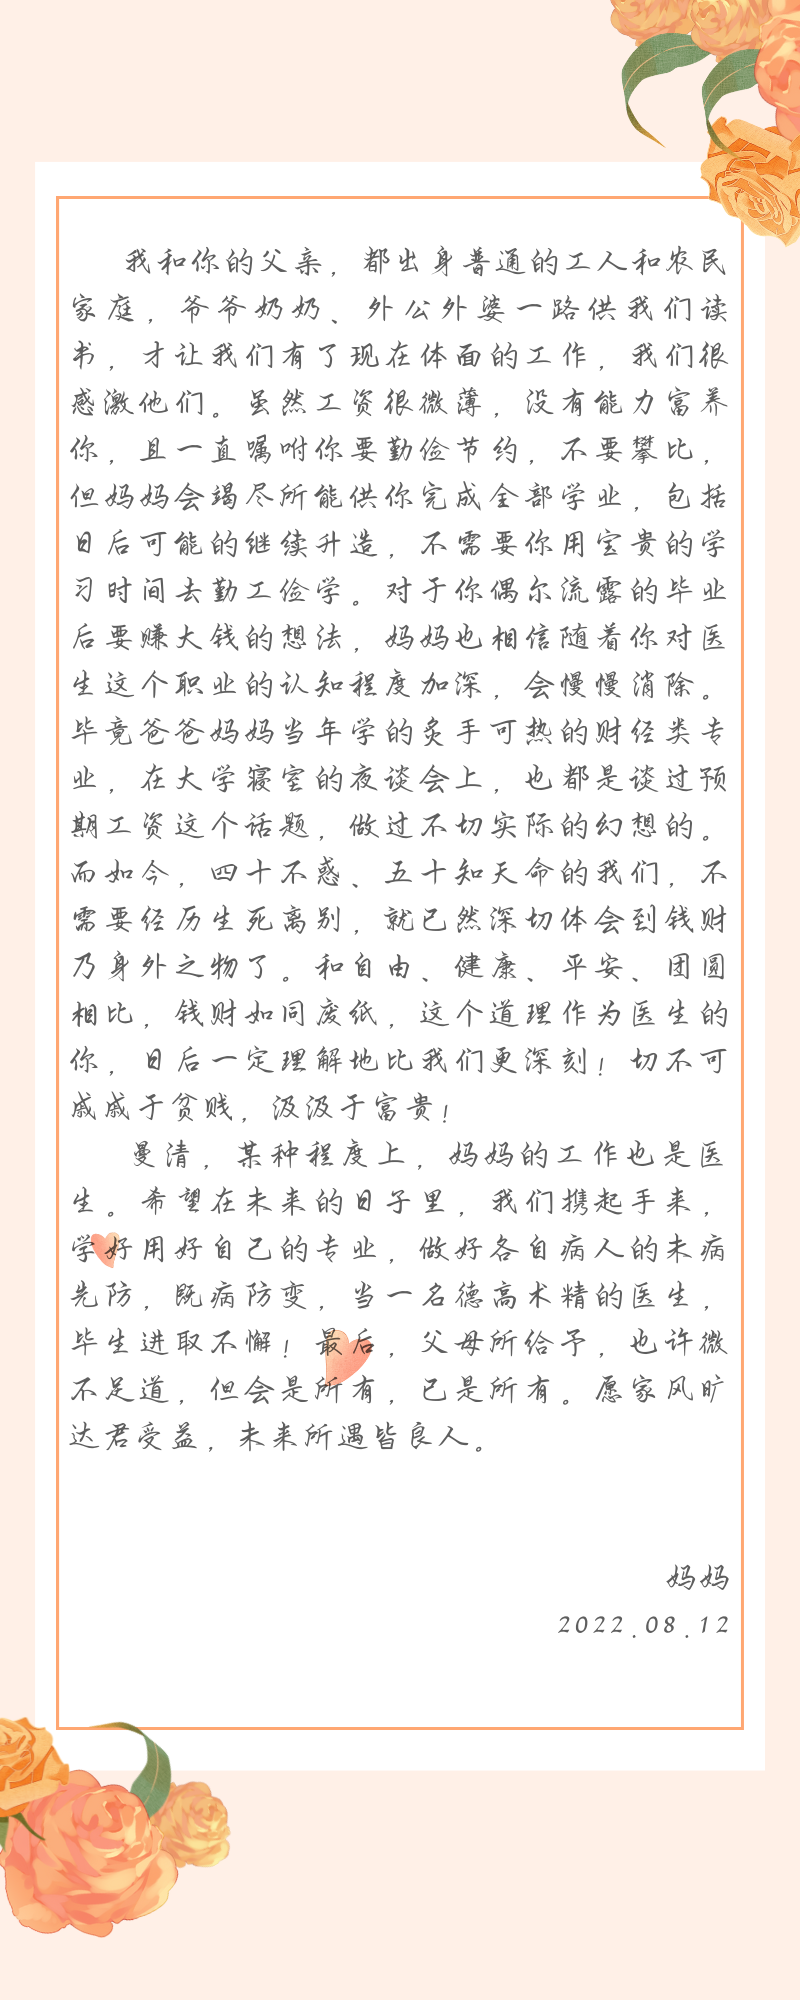 我和你的父亲，都出身普通的工人和农民
家庭，爷爷奶奶、外公外婆一路供我们读
书，才让我们有了现在体面的工作，我们很
感激他们。虽然工资很微薄，没有能力富养
你，且一直嘱咐你要勤俭节约，不要攀比，
但妈妈会竭尽所能供你完成全部学业，包括
日后可能的继续升造，不需要你用宝贵的学
习时间去勤工俭学。对于你偶尔流露的毕业
后要赚大钱的想法，妈妈也相信随着你对医
生这个职业的认知程度加深，会慢慢消除。
毕竟爸爸妈妈当年学的炙手可热的财经类专
业，在大学寝室的夜谈会上，也都是谈过预
期工资这个话题，做过不切实际的幻想的。
而如今，四十不惑、五十知天命的我们，不
需要经历生死离别，就已然深切体会到钱财
乃身外之物了。和自由、健康、平安、团圆
相比，钱财如同废纸，这个道理作为医生的
你，日后一定理解地比我们更深刻！切不可
戚戚于贫贱，汲汲于富贵！
曼清，某种程度上，妈妈的工作也是医
生。希望在未来的日子里，我们携起手来，
学好用好自己的专业，做好各自病人的未病
先防，既病防变，当一名德高术精的医生，
毕生进取不懈！最后，父母所给予，也许微
不足道，但会是所有，已是所有。愿家风旷
达君受益，未来所遇皆良人。
妈妈
2022.08.12